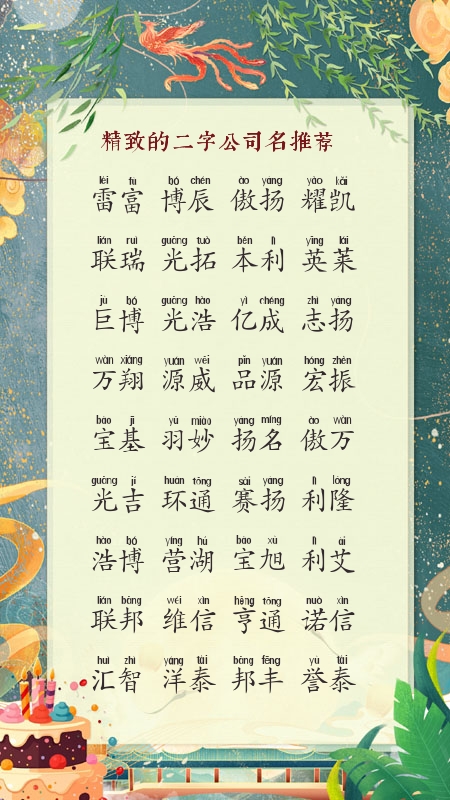 精致的二字公司名推荐
léi fù bó chén ào yáng yào kǎi
雷富 博辰 傲扬 耀凯
lián ruì guāng tuò běn lì yīng lái
联瑞 光拓 本利 英莱
jù bó guāng hào yì chéng zhì yáng
巨博 光浩 亿成 志扬
wàn xiáng yuán wēi pǐn yuán hóng zhèn
万翔 源威 品源 宏振
bǎo jī yǔ miào yáng míng ào wàn
宝基 羽妙 扬名 傲万
guāng jí huán tōng sài yáng lì lóng
光吉 环通 赛扬 利隆
hào bó yíng hú bǎo xù lì ài
浩博 营湖 宝旭 利艾
lián bāng wéi xìn hēng tōng nuò xìn
联邦 维信 亨通 诺信
huì zhì yáng tài bāng fēng yù tài
汇智 洋泰 邦丰 誉泰